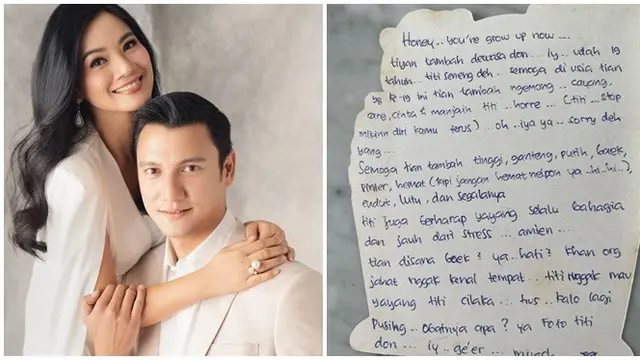 Honey.. you're grow up now ....
tiyan tambah dewasa don... iy.. udah 19
tahun... titi seneng deh.. semoga di usia tian
yg ke-19 ini tian tambah ngemong.. sayang,
care, cinta & manjain titi.. horre... (titi... stop
mikirin diri kamu terus)... oh..iya ya.. sorry deh
yang...
Semoga tian tambah tinggi, ganteng, putih,
pinter, hemat (tapi jangan hemat nelpon ya..hi..hi..),
endut, lutu, dan segalanya
titi juga berharap yayang selalu bahagia
dan jauh dari stress... amien...
tian disana baek? ya..hati? khan org
jahat nggak kenal tempat... titi nggak mau
yayang titi cilaka... hus.. kalo lagi
pusing.. obatnya apa? ya foto titi
don... iy.. ge'er...